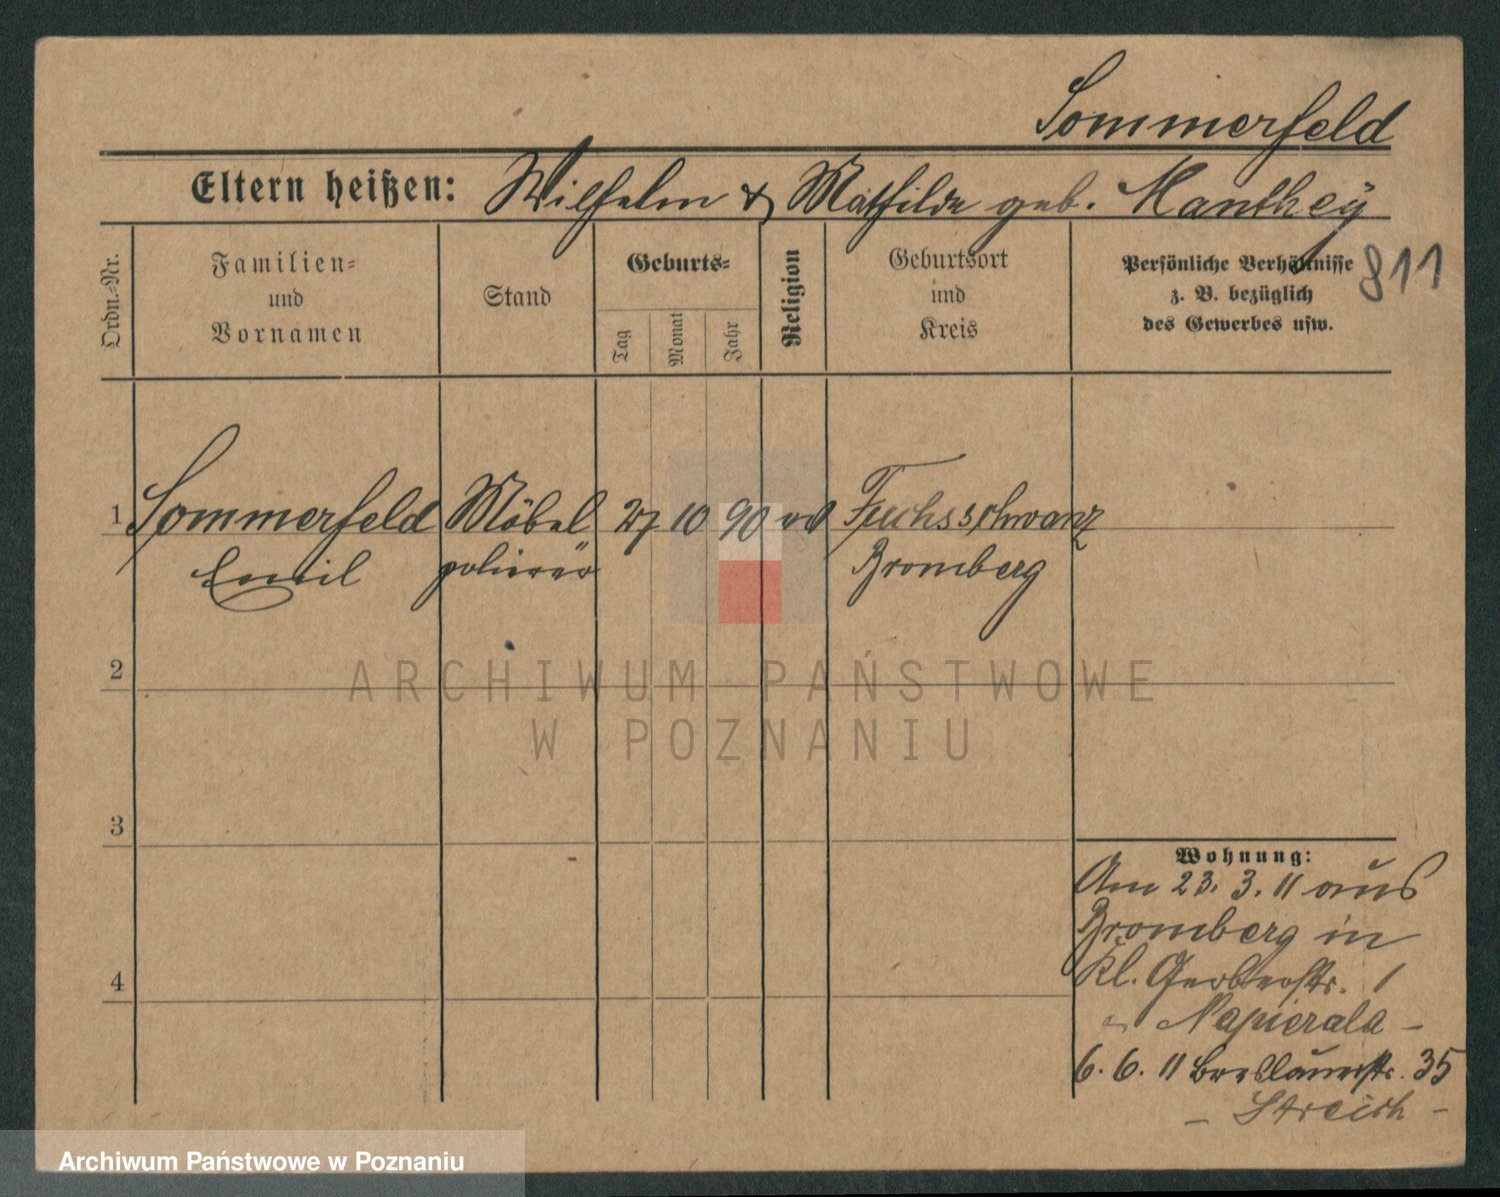 Sommerfeld
Eltern heißen: Wilhelm & Mathilde geb. Manthey
811
Ordn.=Nr.
Familien=
und
Vornamen
Stand
Geburts=
Tag
Monat
Jahr
Religion
Geburtsort
und
Kreis
Persönliche Verhältnisse
z. B. bezüglich
des Gewerbes usw.
1 Sommerfeld Möbel 27 10 90 Fuchsschwanz
Emil polierer Bromberg
2
ARCHIWUM PAŃSTWOWE
W POZNANIU
3
Wohnung:
Am 23. 3. 11 aus
Bromberg in
4
Kl. Gerberstr. 1
Napierala –
6. 6. 11 Breslauerstr. 35
– Streich –
Archiwum Państwowe w Poznaniu